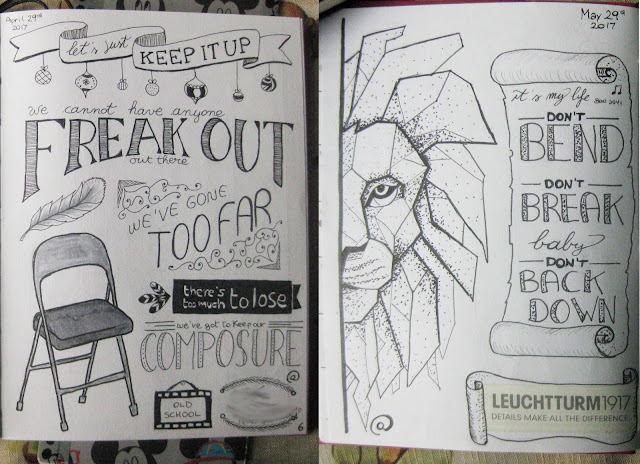 April 29th
2017
let's just KEEP IT UP
we cannot have anyone
FREAK OUT
out there
WE'VE GONE
TOO FAR
there's
too much to lose
we've got to keep our
COMPOSURE
OLD
SCHOOL
@
6
May 29th
2017
it's my life
DON'T
BEND
DON'T
BREAK
baby
DON'T
BACK
DOWN
@
LEUCHTTURM1917
DETAILS MAKE ALL THE DIFFERENCE